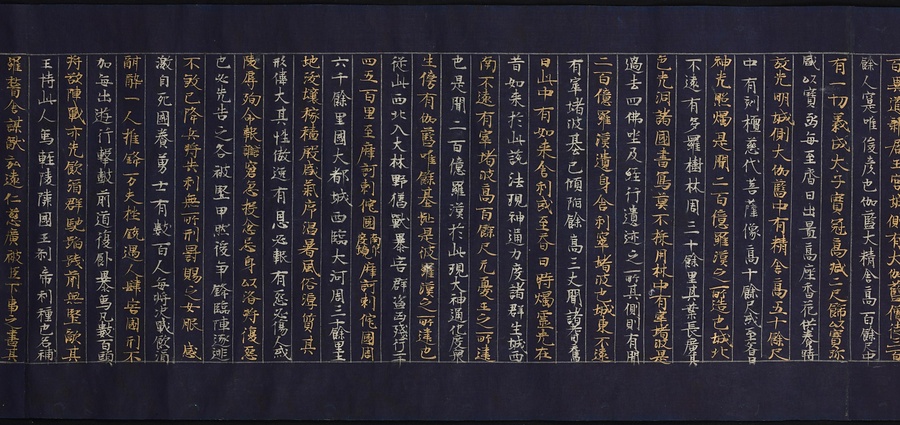 餘人寔唯俊彦也伽藍大精舍高百餘尺中
有一切義成太子寶冠高減二尺飾以寶珎
盛以寶函每至齋日出置高座香花供養時
放光明城側大伽藍中有精舍高五十餘尺
中有刻檀慈氏菩薩像高十餘尺或至齋日
神光照燭是聞二百億羅漢之所造也城北
不遠有多羅樹林周三十餘里其葉長廣其
色光潤諸國書寫莫不採用林中有窣堵波是
過去四佛坐及經行遺迹之所其側則有聞
二百億羅漢遺身舍利窣堵波也城東不遠
有窣堵波基已傾陷餘高三丈聞諸耆舊
曰此中有如来舍利或至齋日時燭靈光在
昔如来於此説法現神通力度諸群生城西
南不遠有窣堵波高百餘尺无憂王之所建
也是聞二百億羅漢於此現大神通化度衆
生傍有伽藍唯餘基趾是彼羅漢之所建也
從此西北入大林野猛獸暴害群盗㐫殘行二千
四五百里至摩訶剌侘國南印度境摩訶剌侘國周
六千餘里國大都城西臨大河周三十餘里土
地沃壤稼穡殷盛氣序温暑風俗淳質其
形偉大其性傲逸有恩必報有怨必復人或
陵辱殉命以讎窘急投分忘身以濟將復怨
也必先告之各被堅甲然後爭鋒臨陣逐北
不殺已降兵將失利無所刑罰賜之女服感
激自死國養勇士有數百人每將決戰飲酒
酣醉一人摧鋒万夫挫鋭遇人肆害國刑不
加每出遊行擊皷前導復飼暴象凡數百頭
將欲陣戰亦先飲酒群馳蹈踐前無堅敵其
王恃此人象輕陵隣國王刹帝利種也名補
羅稽舍謀猷弘遠仁慈廣被臣下事之盡其